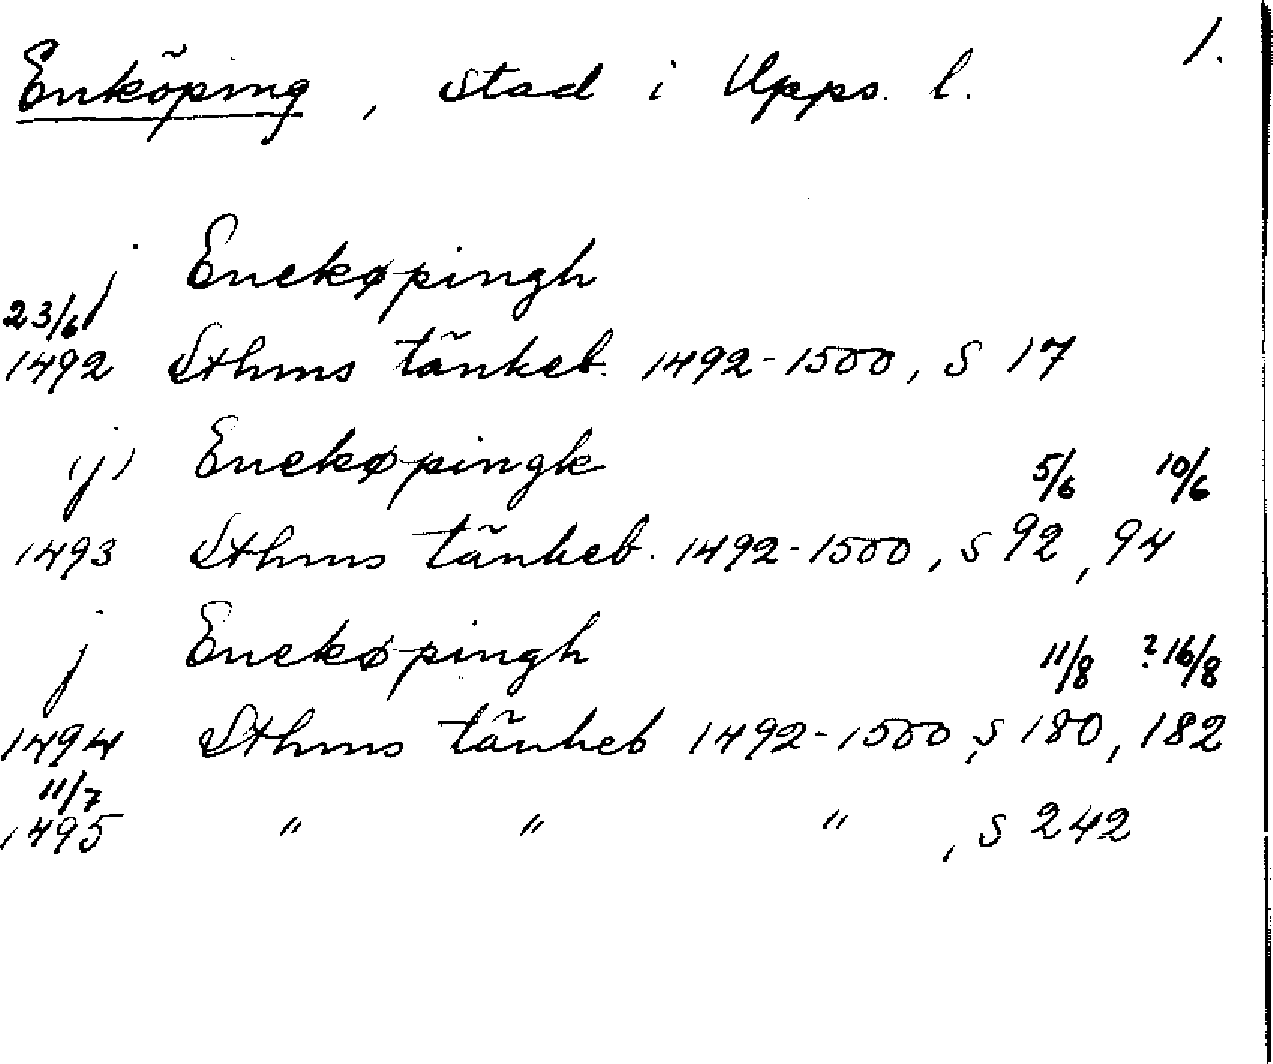 1.
Enköping, stad i Upps. l.
j Enekøpingh
23/6
1492 Sthms tänkeb. 1492-1500, s 17
(j) Enekøpingk 5/6 10/6
1493 Sthms tänkeb. 1492-1500, s 92, 94
j Enekøpingh 11/8 ?16/8
1494 Sthms tänkeb 1492-1500, s 180, 182
11/7
1495 " " " , s 242